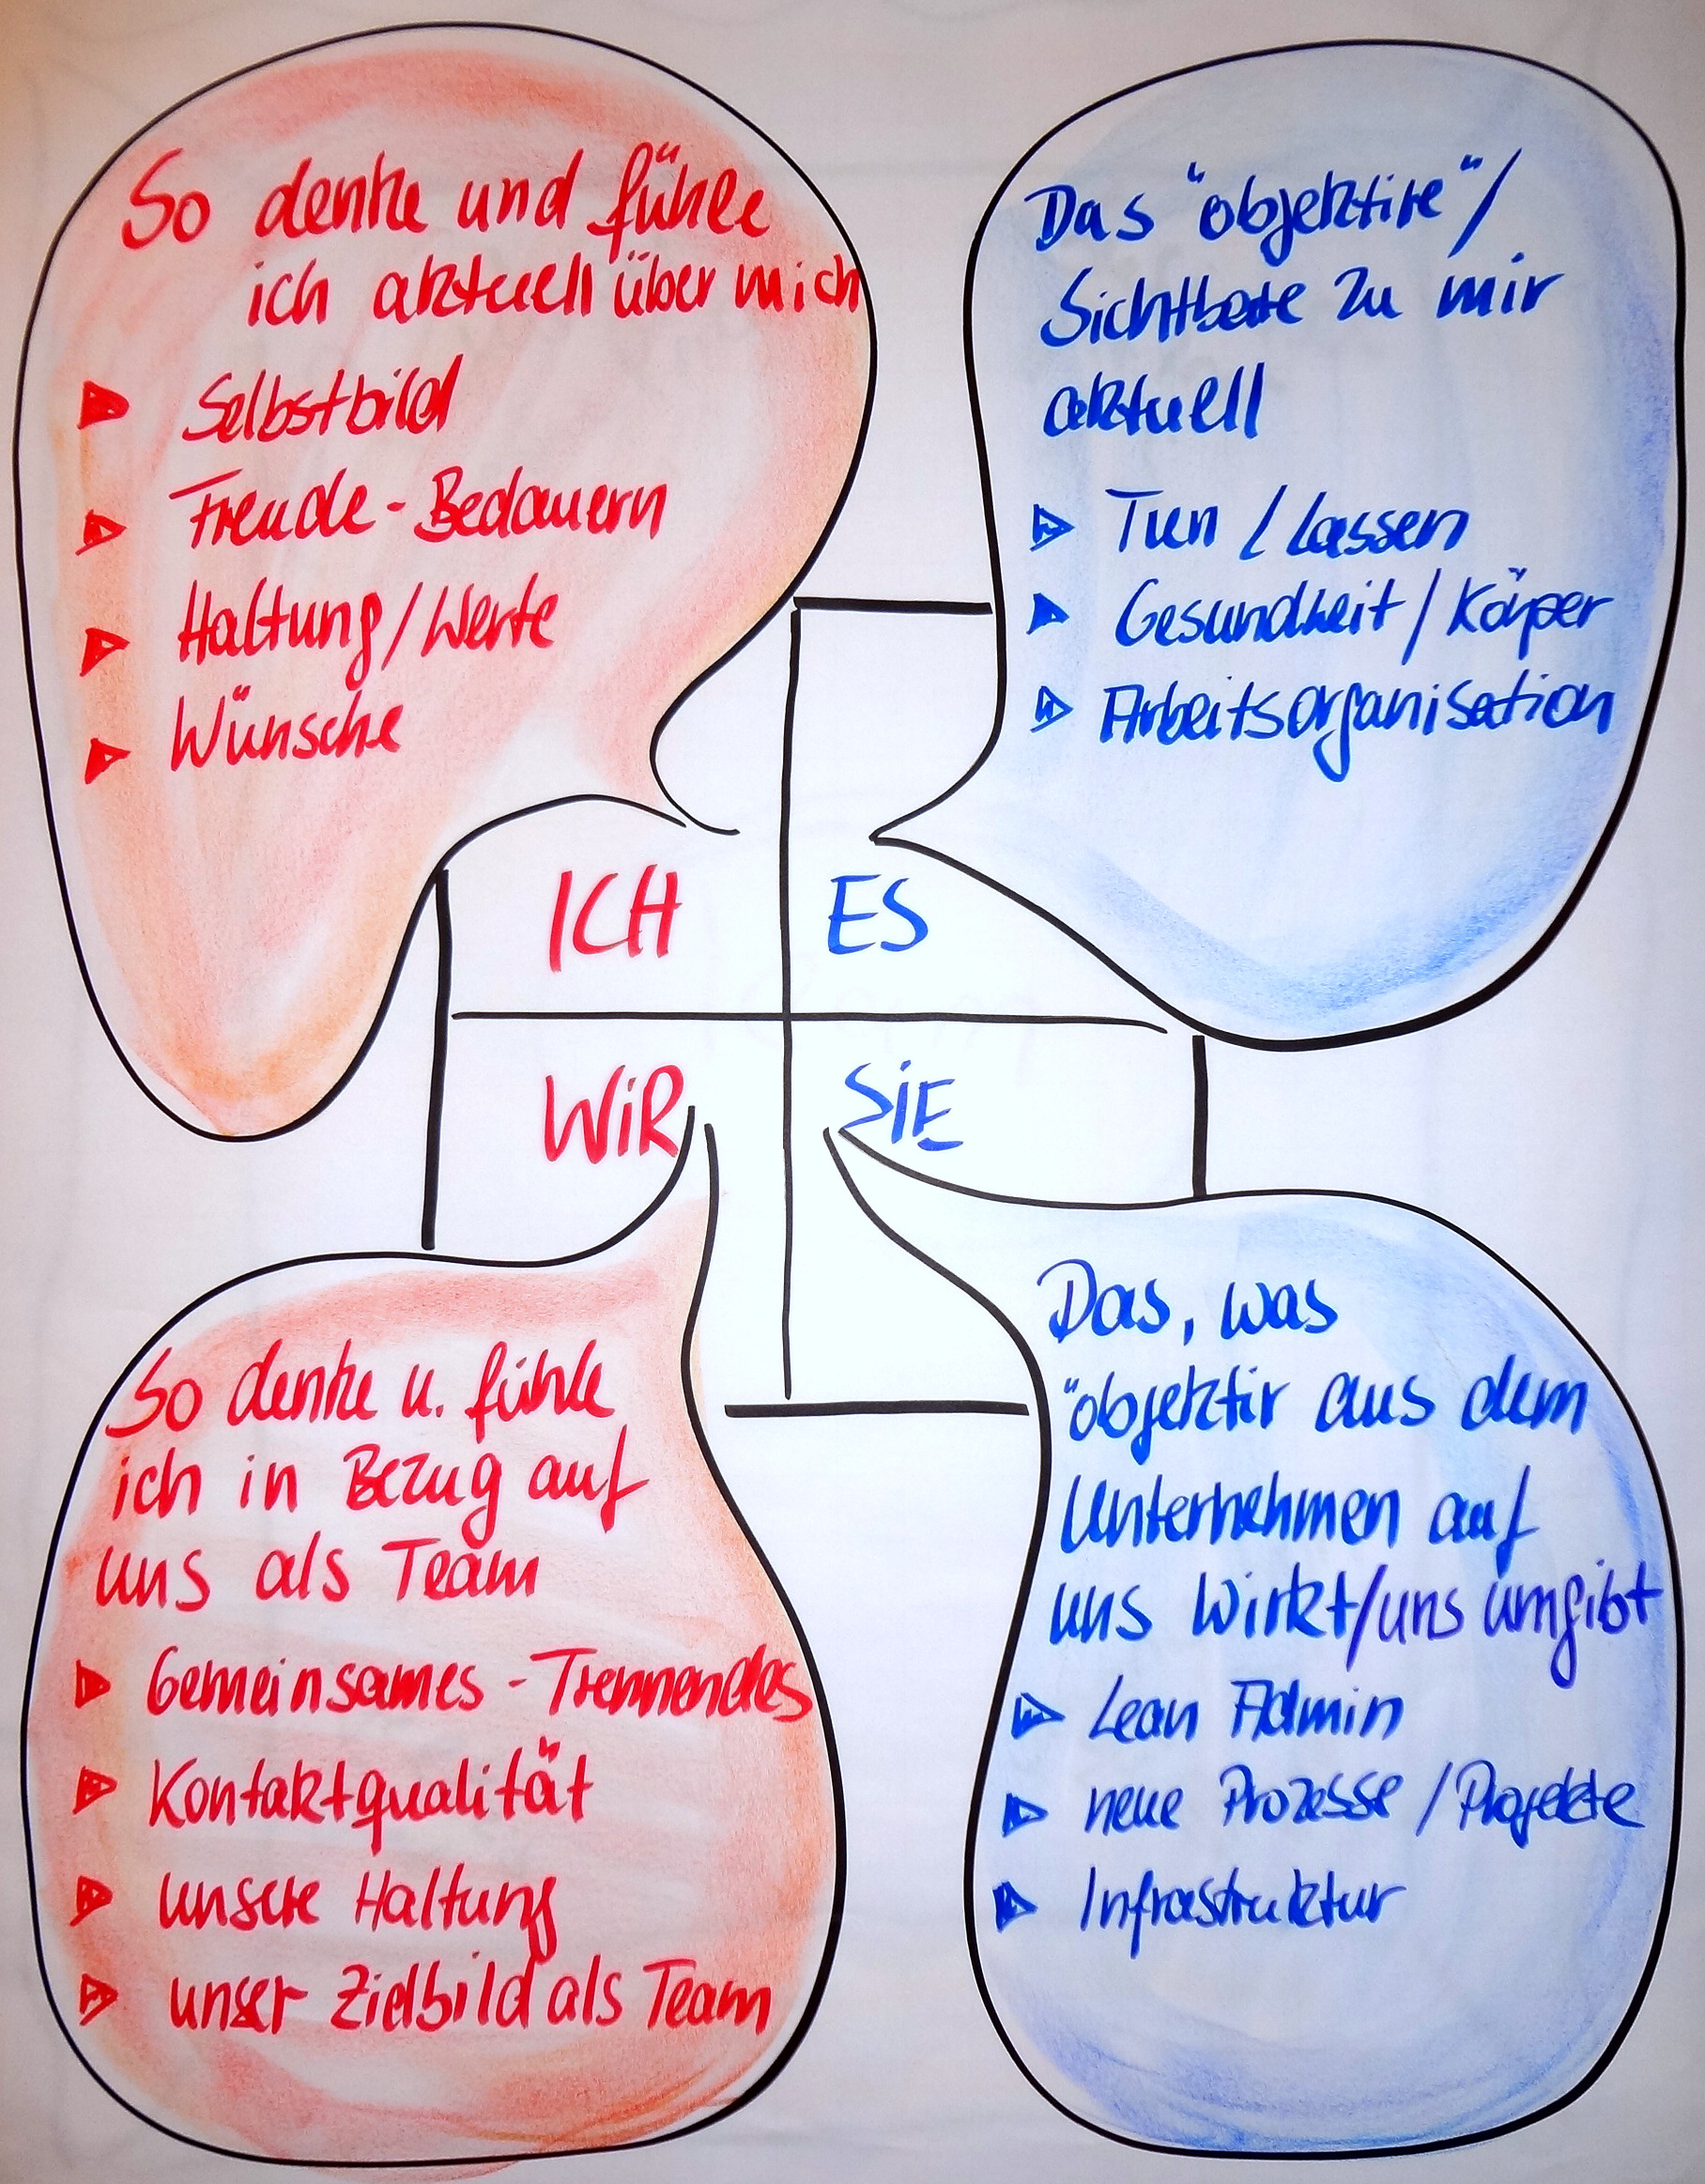 So denke und fühle
ich aktuell über mich
Selbstbild
Freude - Bedauern
Haltung/Werte
Wünsche
Das "objektive"/
Sichtbare zu mir
aktuell
Tun / Lassen
Gesundheit / Körper
Arbeitsorganisation
ICH
ES
WiR
SiE
So denke u. fühle
ich in Bezug auf
uns als Team
Gemeinsames - Trennendes
Kontaktqualität
unsere Haltung
unser Zielbild als Team
Das, was
"objektiv aus dem
Unternehmen auf
uns wirkt/uns umgibt
Lean Admin
neue Prozesse / Projekte
Infrastruktur